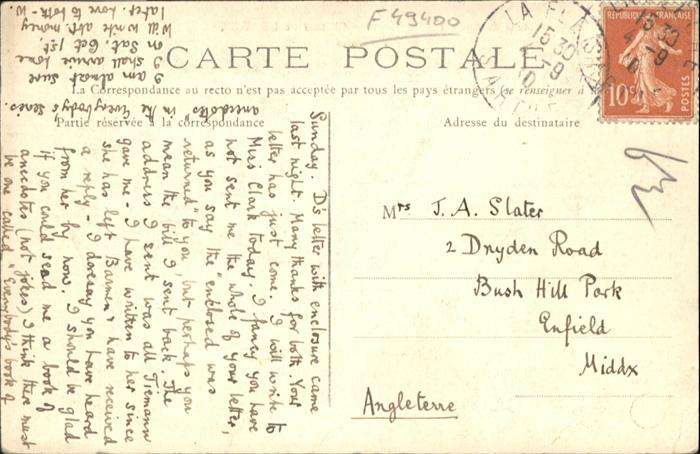 F 49400
CARTE POSTALE
La Correspondance au recto n'est pas acceptée par tous les pays étrangers (se renseigner à
Partie réservée à la correspondance
Adresse du destinataire
LA FLÈCHE
15 30
4 - 9
10
SARTHE
RÉPUBLIQUE FRANÇAISE
10
POSTES
Mrs J. A. Slater
2 Dryden Road
Bush Hill Park
Enfield
Middx
Angleterre
Sunday. D's letter with enclosure came
last night. Many thanks for both. Your
letter has just come. I will write to
Miss Clark today. I fancy you have
not sent me the whole of your letter,
as you say the "enclosed was
returned" to you, but perhaps you
mean the bill I sent back. The
address I sent was all Tiemann
gave me - I have written to her since
she has left Barmen & have received
a reply - I daresay you have heard
from her by now. I should be glad
if you could send me a book of
anecdotes (not jokes) I think there must
be one called "Everybody's book of
anecdotes" in the Everybody's series.
I am almost sure
I shall arrive home
on Sat. Oct 1st.
Will write abt. money
later. Love to both - W.